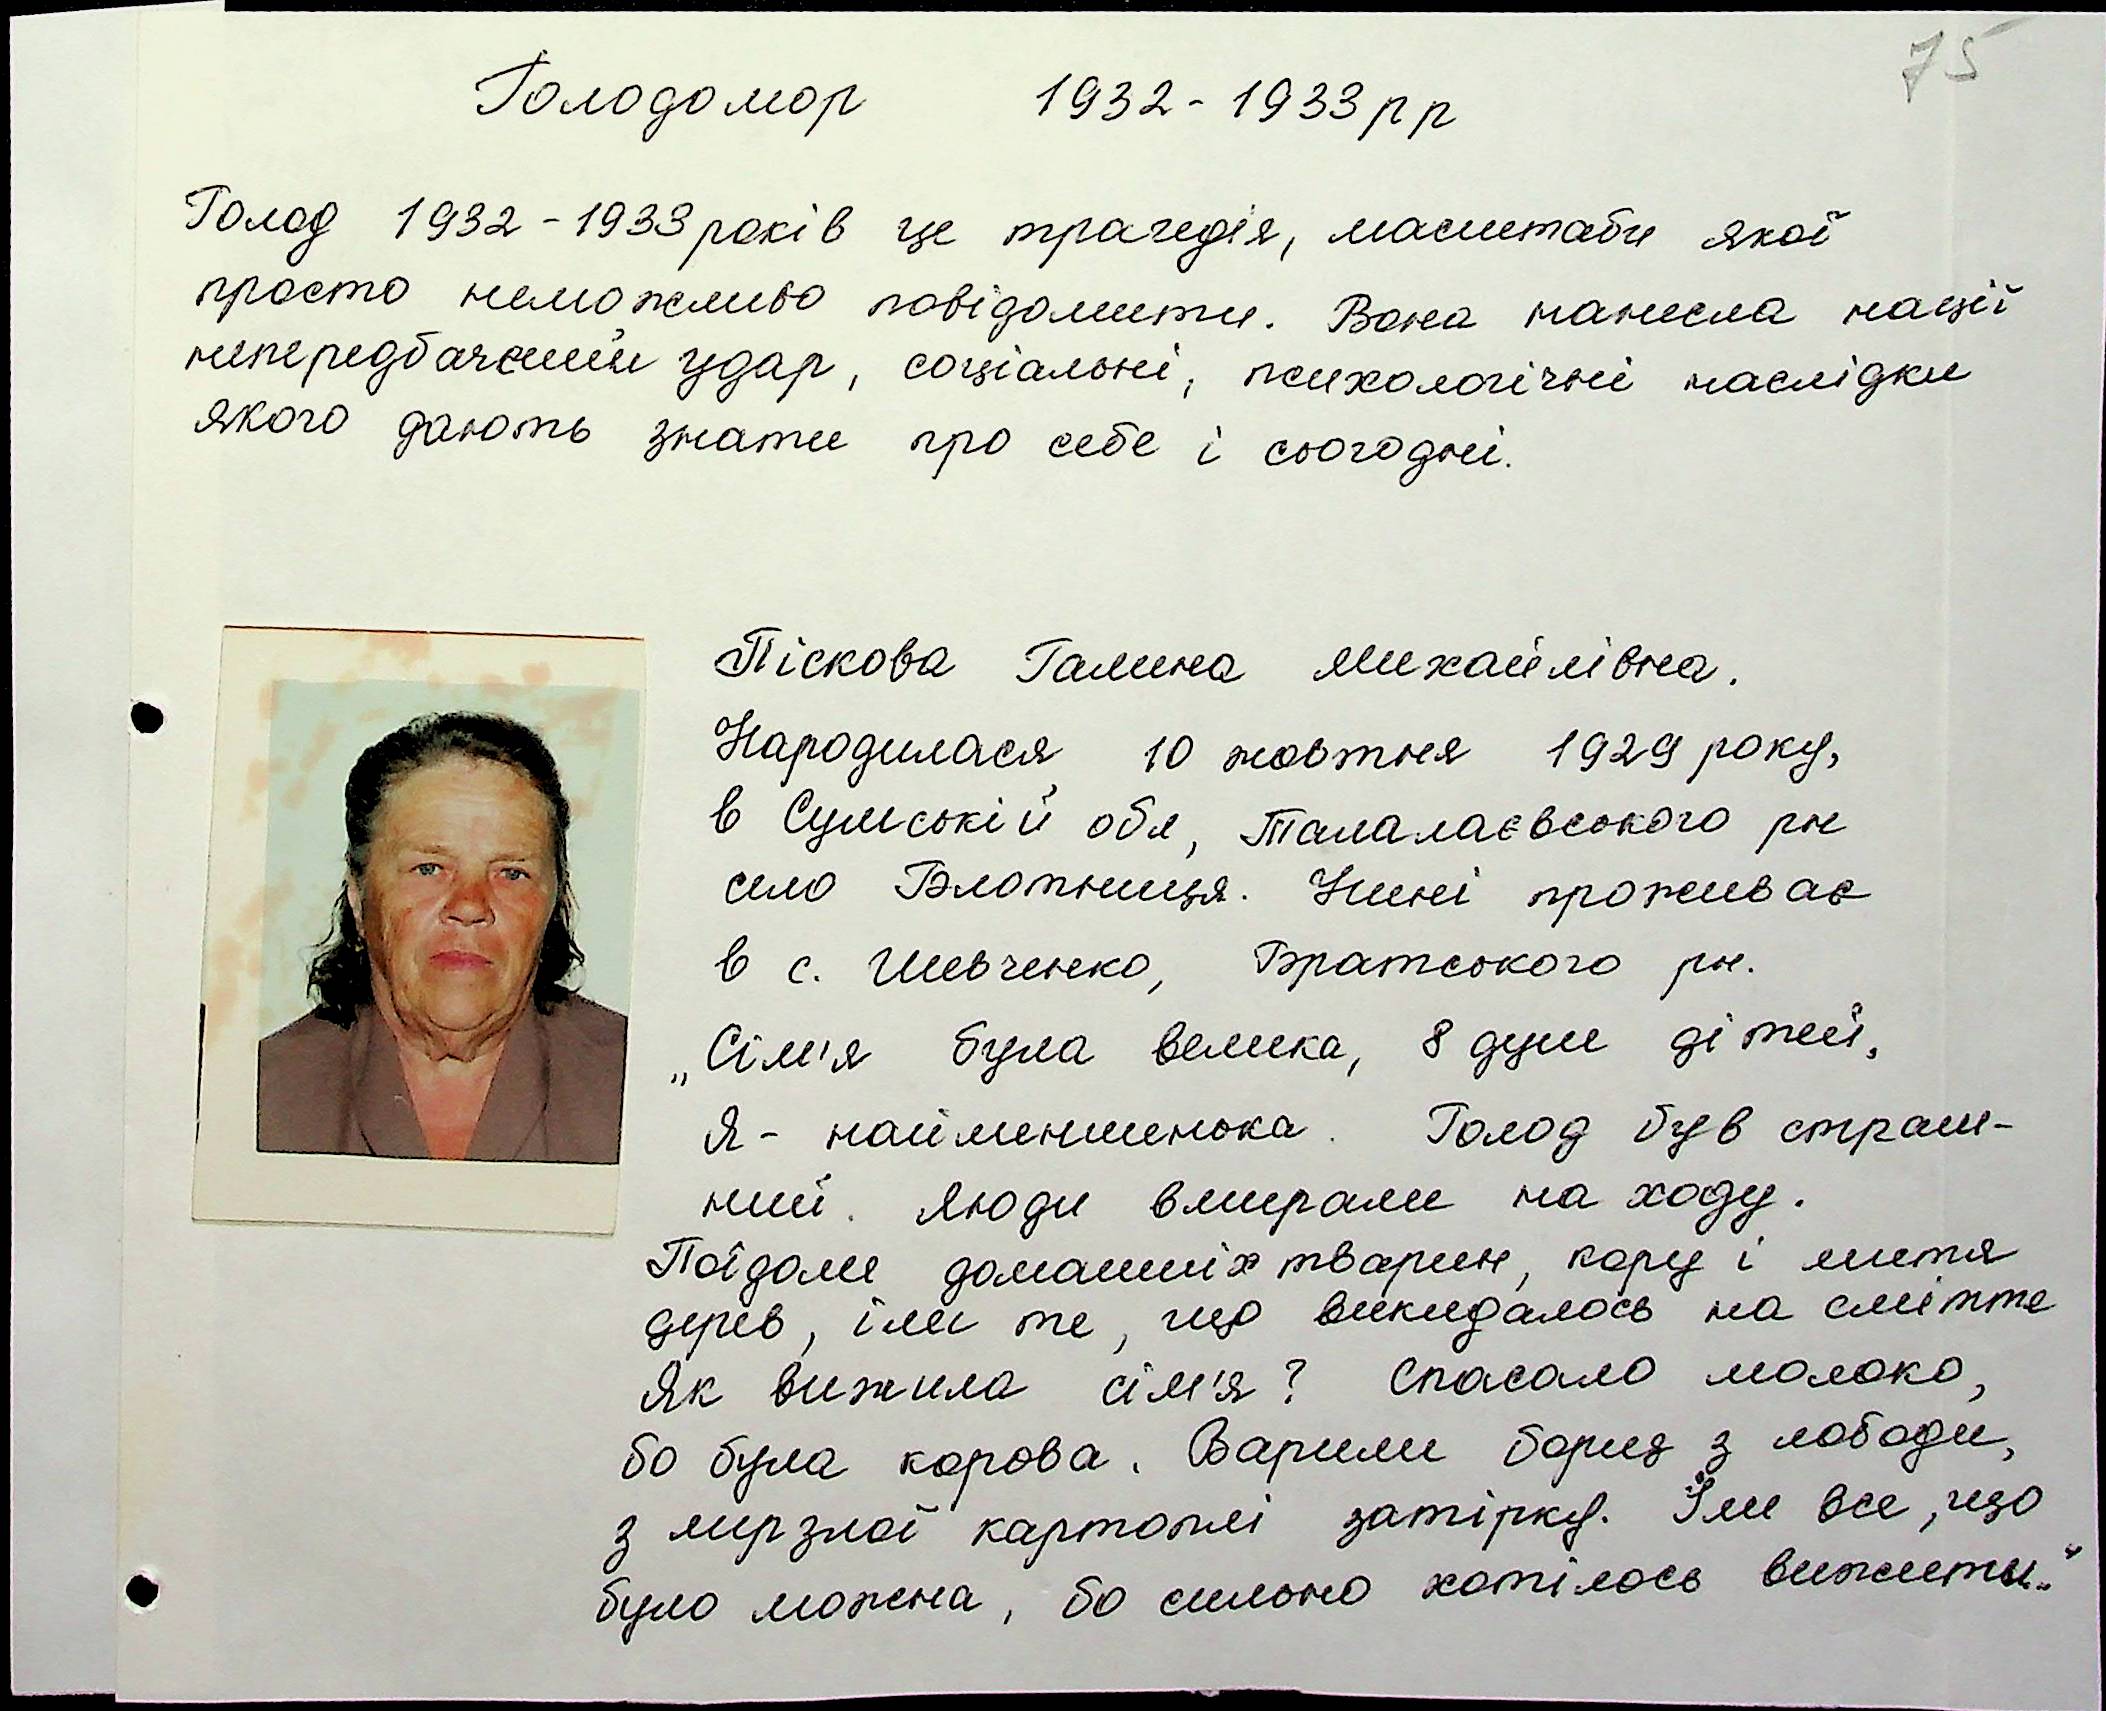 75
Голодомор 1932-1933рр
Голод 1932-1933 років це трагедія, масштаби якої
просто неможливо повідомити. Вона нанесла нації
непередбачений удар, соціальні, психологічні наслідки
якого дають знати про себе і сьогодні.
Піскова Галина Михайлівна.
Народилася 10 жовтня 1929 року,
в Сумській обл, Талалаєвського рн
село Блотниця. Нині проживає
в с. Шевченко, Братського рн.
„Сім'я була велика, 8 душ дітей,
Я - найменшенька. Голод був страш-
ний. Люди вмирали на ходу.
Поїдали домашніх тварин, кору і листя
дерев, їли те, що викидалось на сміття
Як вижила сім'я? Спасало молоко,
бо була корова. Варили борщ з лободи,
з мерзлої картоплі затірку. Їли все, що
було можна, бо сильно хотілось вижити."